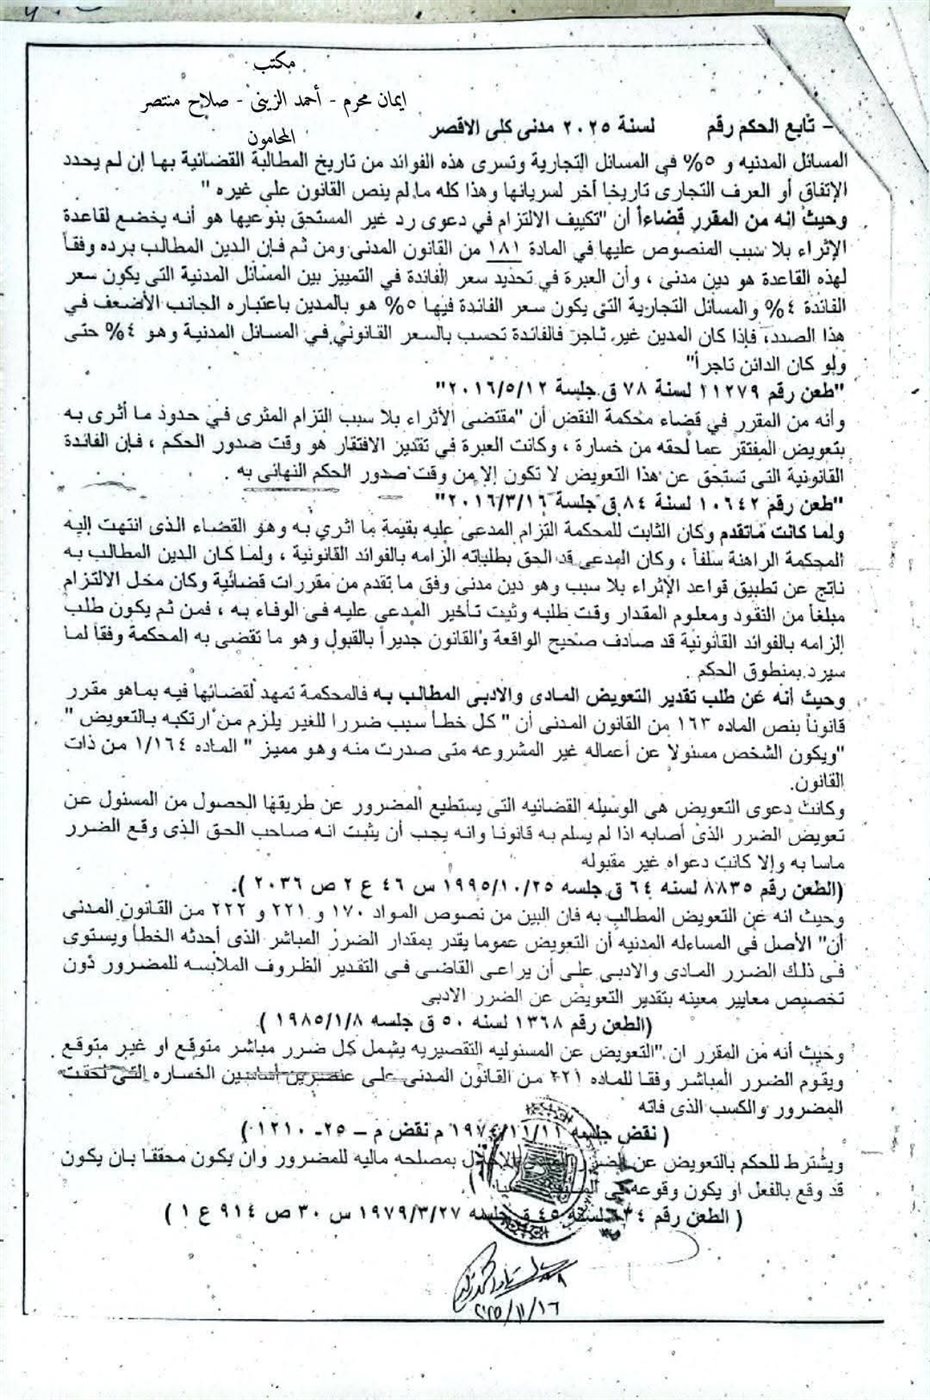 مكتب
ايمان محرم - أحمد الزينى - صلاح منتصر
المحامون
- تابع الحكم رقم لسنة ٢٠٢٥ مدنى كلى الاقصر
المسائل المدنيه و ٥% فى المسائل التجارية وتسرى هذه الفوائد من تاريخ المطالبة القضائية بها إن لم يحدد
الإتفاق أو العرف التجارى تاريخا أخر لسريانها وهذا كله مالم ينص القانون على غيره "
وحيث انه من المقرر قضاءاً أن "تكييف الالتزام في دعوى رد غير المستحق بنوعيها هو أنه يخضع لقاعدة
الإثراء بلا سبب المنصوص عليها في المادة ١٨١ من القانون المدنى ومن ثم فإن الدين المطالب برده وفقاً
لهذه القاعدة هو دين مدنى ، وأن العبرة في تحديد سعر الفائدة في التمييز بين المسائل المدنية التى يكون سعر
الفائدة ٤% والمسائل التجارية التى يكون سعر الفائدة فيها ٥% هو بالمدين باعتباره الجانب الأضعف في
هذا الصدد، فإذا كان المدين غير تاجر فالفائدة تحسب بالسعر القانوني في المسائل المدنية وهو ٤% حتى
ولو كان الدائن تاجراً"
"طعن رقم ١١٢٧٩ لسنة ٧٨ ق جلسة ٢٠١٦/٥/١٢"
وأنه من المقرر في قضاء محكمة النقض أن "مقتضى الأثراء بلا سبب التزام المثرى في حدود ما أثرى به
بتعويض المفتقر عما لحقه من خسارة ، وكانت العبرة في تقدير الافتقار هو وقت صدور الحكم ، فإن الفائدة
القانونية التى تستحق عن هذا التعويض لا تكون إلا من وقت صدور الحكم النهائى به .
"طعن رقم ١٠٦٤٢ لسنة ٨٤ ق جلسة ٢٠١٦/٣/١٦"
ولما كانت ماتقدم وكان الثابت للمحكمة التزام المدعى عليه بقيمة ما اثري به وهو القضاء الذى انتهت إليه
المحكمة الراهنة سلفاً ، وكان المدعى قد الحق بطلباته الزامه بالفوائد القانونية ، ولما كان الدين المطالب به
ناتج عن تطبيق قواعد الإثراء بلا سبب وهو دين مدنى وفق ما تقدم من مقررات قضائية وكان محل الالتزام
مبلغاً من النقود ومعلوم المقدار وقت طلبه وثبت تأخير المدعى عليه فى الوفاء به ، فمن ثم يكون طلب
إلزامه بالفوائد القانونية قد صادف صحيح الواقعة والقانون جديراً بالقبول وهو ما تقضى به المحكمة وفقا لما
سيرد بمنطوق الحكم .
وحيث أنه عن طلب تقدير التعويض المادى والادبى المطالب به فالمحكمة تمهد لقضائها فيه بماهو مقرر
قانوناً بنص الماده ١٦٣ من القانون المدنى أن " كل خطأ سبب ضررا للغير يلزم من ارتكبه بالتعويض "
"ويكون الشخص مسئولا عن أعماله غير المشروعه متى صدرت منه وهو مميز " الماده ١/١٦٤ من ذات
القانون.
وكانت دعوى التعويض هى الوسيله القضائيه التى يستطيع المضرور عن طريقها الحصول من المسئول عن
تعويض الضرر الذى أصابه اذا لم يسلم به قانونا وانه يجب أن يثبت انه صاحب الحق الذى وقع الضرر
ماسا به وإلا كانت دعواه غير مقبوله
(الطعن رقم ٨٨٣٥ لسنه ٦٤ ق جلسه ١٩٩٥/١٠/٢٥ س ٤٦ ع ٢ ص ٢٠٣٦ ).
وحيث انه عن التعويض المطالب به فان البين من نصوص المواد ١٧٠ و ٢٢١ و ٢٢٢ من القانون المدنى
أن" الأصل فى المساءله المدنيه أن التعويض عموما يقدر بمقدار الضرر المباشر الذى أحدثه الخطأ ويستوى
فى ذلك الضرر المادى والادبى على أن يراعى القاضى فى التقدير الظروف الملابسه للمضرور دون
تخصيص معايير معينه بتقدير التعويض عن الضرر الادبى
(الطعن رقم ١٣٦٨ لسنه ٥٠ ق جلسه ١٩٨٥/١/٨ ).
وحيث أنه من المقرر ان "التعويض عن المسئوليه التقصيريه يشمل كل ضرر مباشر متوقع او غير متوقع
ويقوم الضرر المباشر وفقا للماده ٢٢١ من القانون المدنى على عنصرين أساسين الخساره التى لحقت
المضرور والكسب الذى فاته
( نقض جلسه ١٩٧٤/١١/١١ م نقض م – ٢٥- ١٢١٠٠)
ويشترط للحكم بالتعويض عن الضرر الإخلال بمصلحه ماليه للمضرور وان يكون محققا بان يكون
قد وقع بالفعل او يكون وقوعه
( الطعن رقم لسنه ٤٥ ق جلسه ١٩٧٩/٣/٢٧ س ٣٠ ص ٩١٤ ع ١ )
٢٠٢٥/١١/١٦